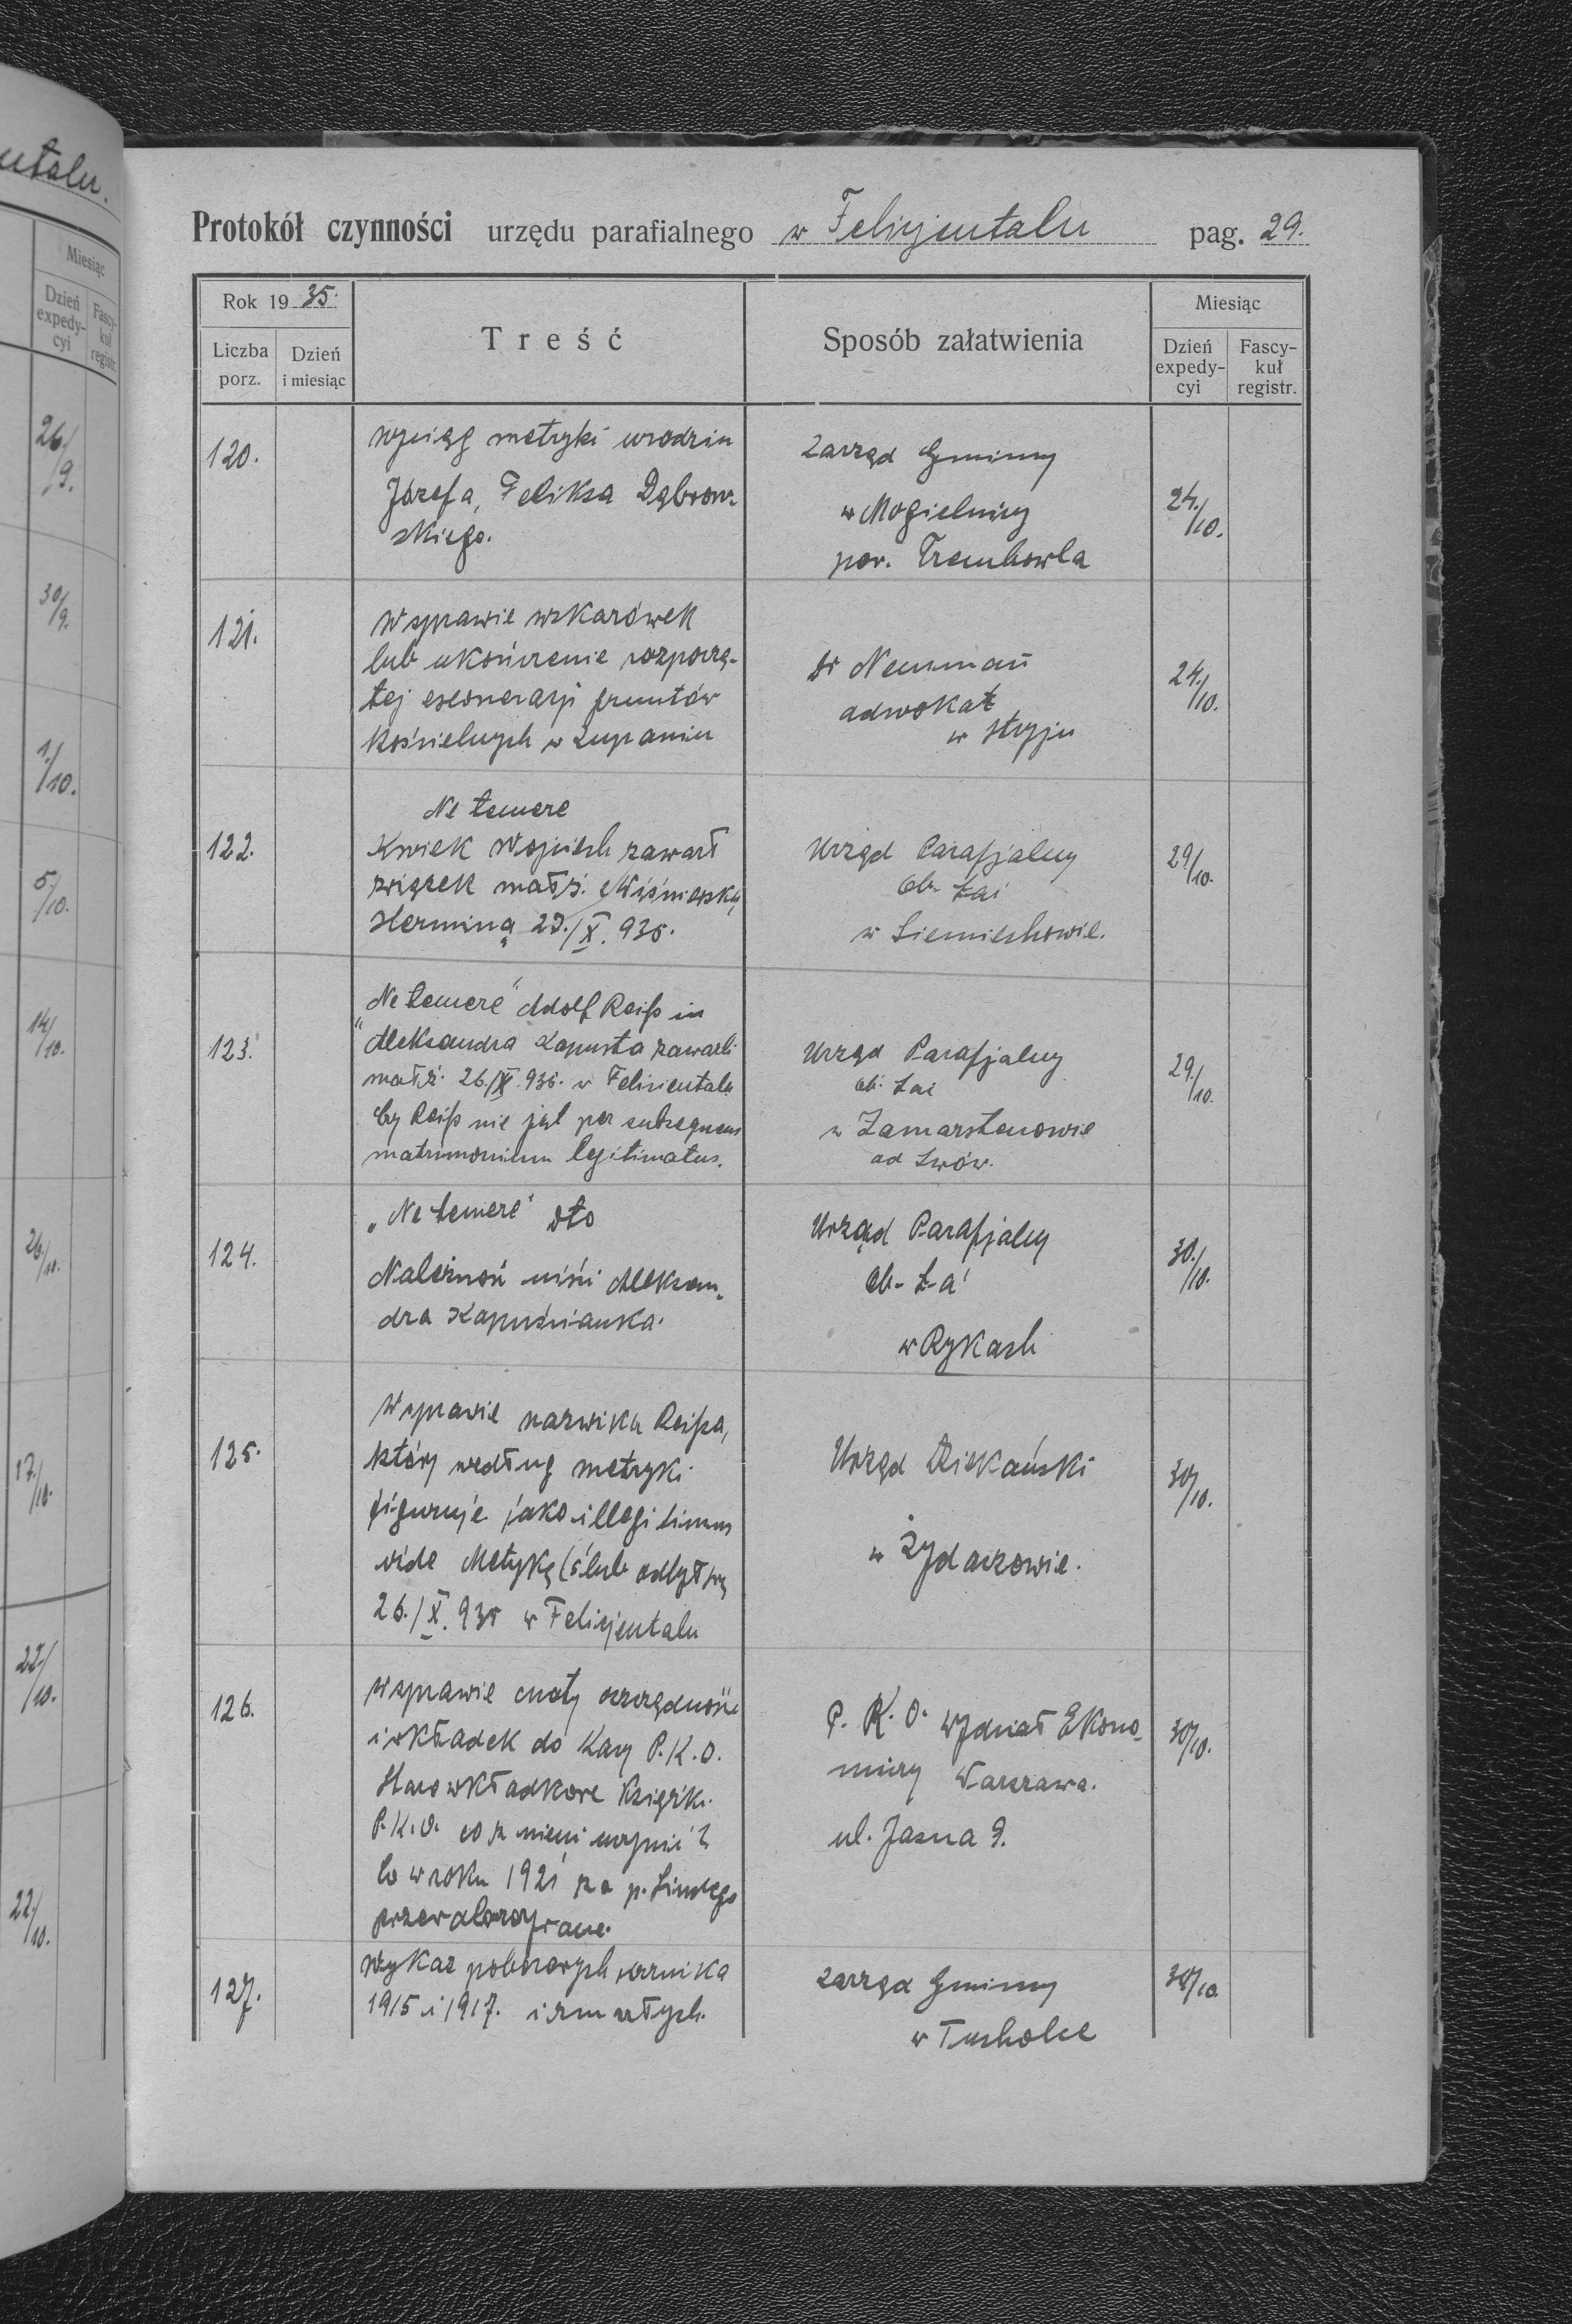 utalu.
Miesiąc
Dzień expedycyi
Fascykuł registr.
26/9.
30/9.
1/10.
5/10.
14/10.
26/10.
17/10.
22/10.
22/10.
Protokół czynności urzędu parafialnego w Felicjentalu pag. 29.
Rok 19 35.
Liczba porz.
Dzień i miesiąc
Treść
Sposób załatwienia
Miesiąc
Dzień expedycyi
Fascykuł registr.
120.
wyciąg metryki urodzin
Józefa, Feliksa Dąbrow-
skiego.
Zarząd Gminny
w Mogielnicy
pow. Trembowla
24./10.
121.
W sprawie wskazówek
lub ukończenie rozpoczę-
tej gruntów
Kościelnych w Żupaniu
Dr Neumann
adwokat
w Stryju
24./10.
122.
Ne temere
Kwiek Wojciech zawarł
związek małż. z Wiśniewską
Herminą 23./X. 935.
Urząd Parafjalny
ob. łać
w Siemiechowie.
29/10.
123.
„Ne temere" Adolf Reiß in
Aleksandra Kapusta zawarli
małż. 26./X. 935. w Felicientalu
Czy Reiß nie jest per subsequens
matrimonium legitimatus.
Urząd Parafjalny
ob. łać
w Zamarstenowie
ad Lwów.
29./10.
124.
„Ne temere" dto
Aleksan-
dra Kapuścianka.
Urząd Parafjalny
ob. ł-a
w Rykach
30./10.
125.
W sprawie nazwiska Reißa,
który według metryki
figuruje jako illegitimus
vide Metrykę (ślub odbył się
26./X. 935 w Felicjentalu
Urząd Dziekański
w Żydaczowie.
30/10.
126.
W sprawie cnoty oszczędności
i wkładek do Kasy P.K.O.
Starowkładkowe Książk.
P.K.O. co z niemi uczynić?
bo w roku 1921 za p. Lindego
P. K. O. Wydział Ekono-
miczy Warszawa.
ul. Jasna 9.
30/10.
127.
Wykaz poborowych rocznika
1915 i 1917. i zmarłych.
Zarząd Gminny
w Tucholce
30/10.